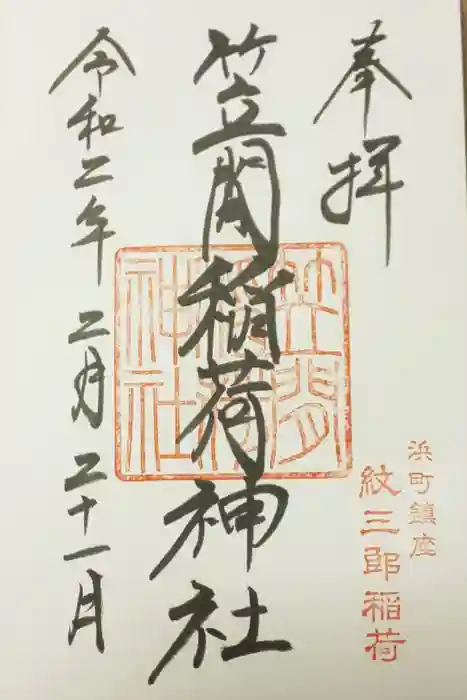 奉拝
浜町鎮座
紋三郎稲荷
笠間稲荷神社
笠間稲荷神社
令和二年 二月 二十一日